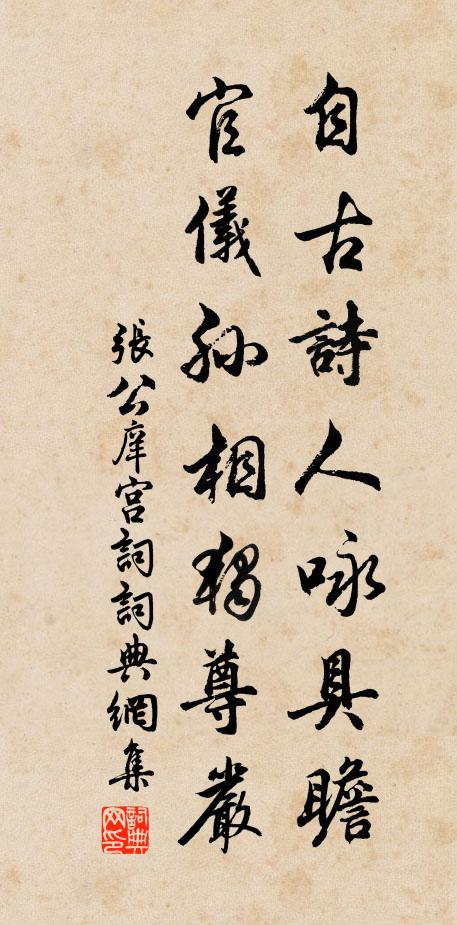 自古詩人咏具瞻
官儀孙相獨尊嚴
張公庠宮詞詞典網集
詞典网印